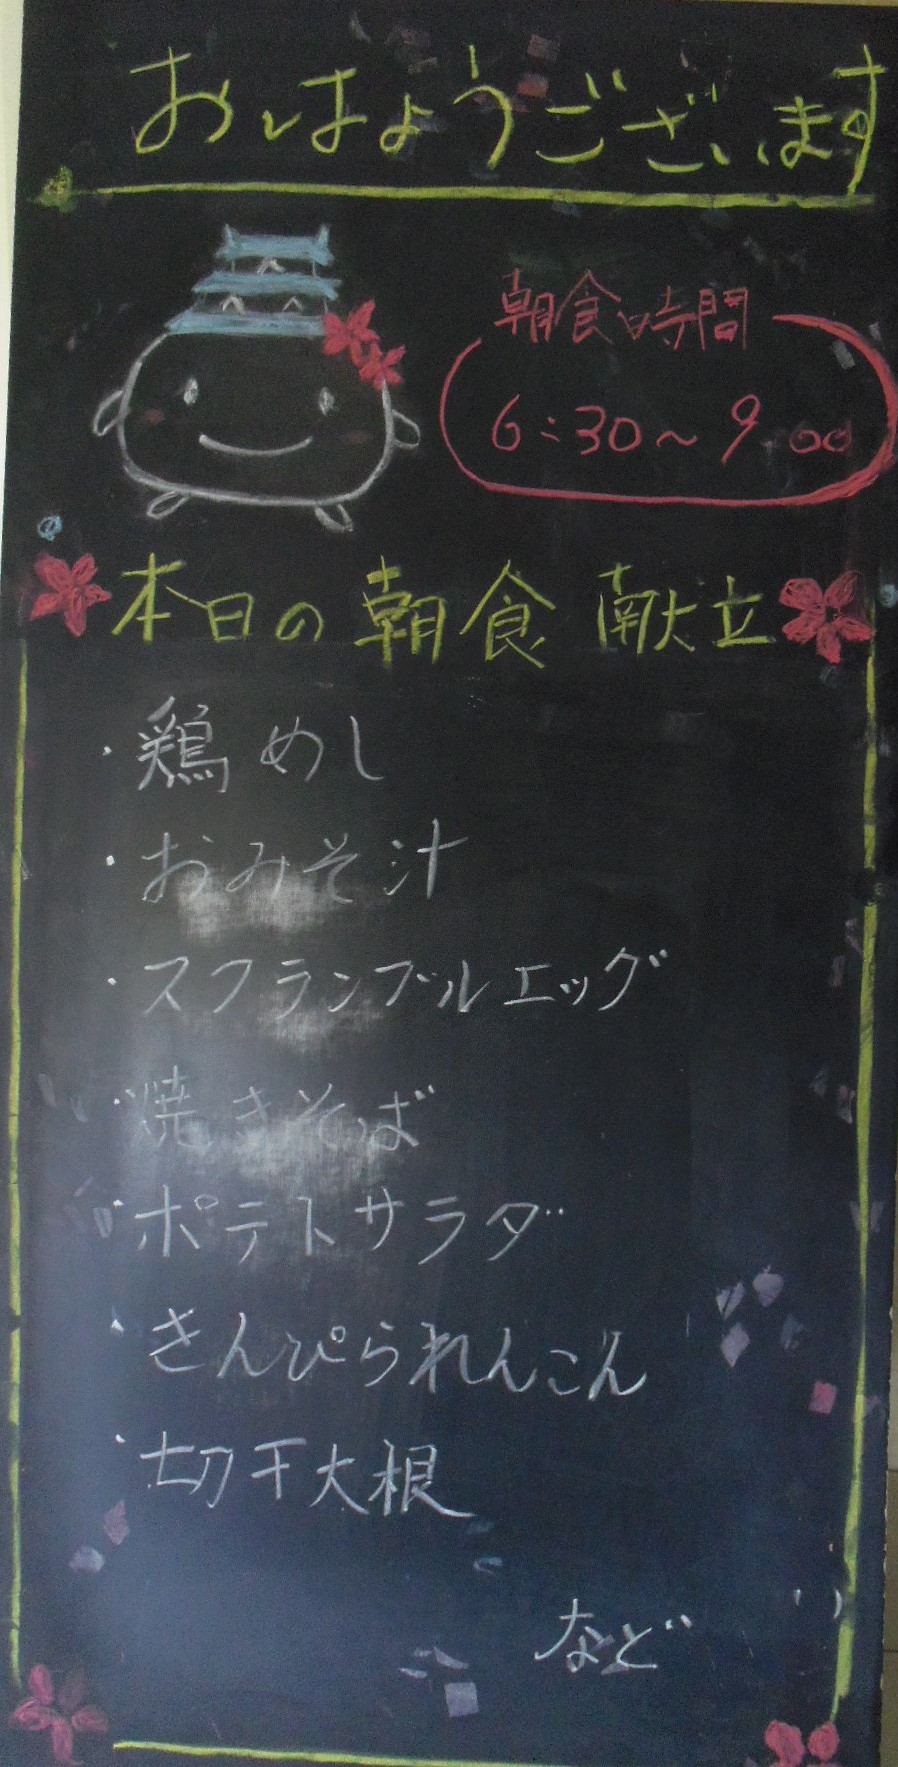 おはようございます
朝食時間
6:30～9:00
本日の朝食献立
・鶏めし
・おみそ汁
・スクランブルエッグ
・焼きそば
・ポテトサラダ
・きんぴられんこん
・切干大根
など